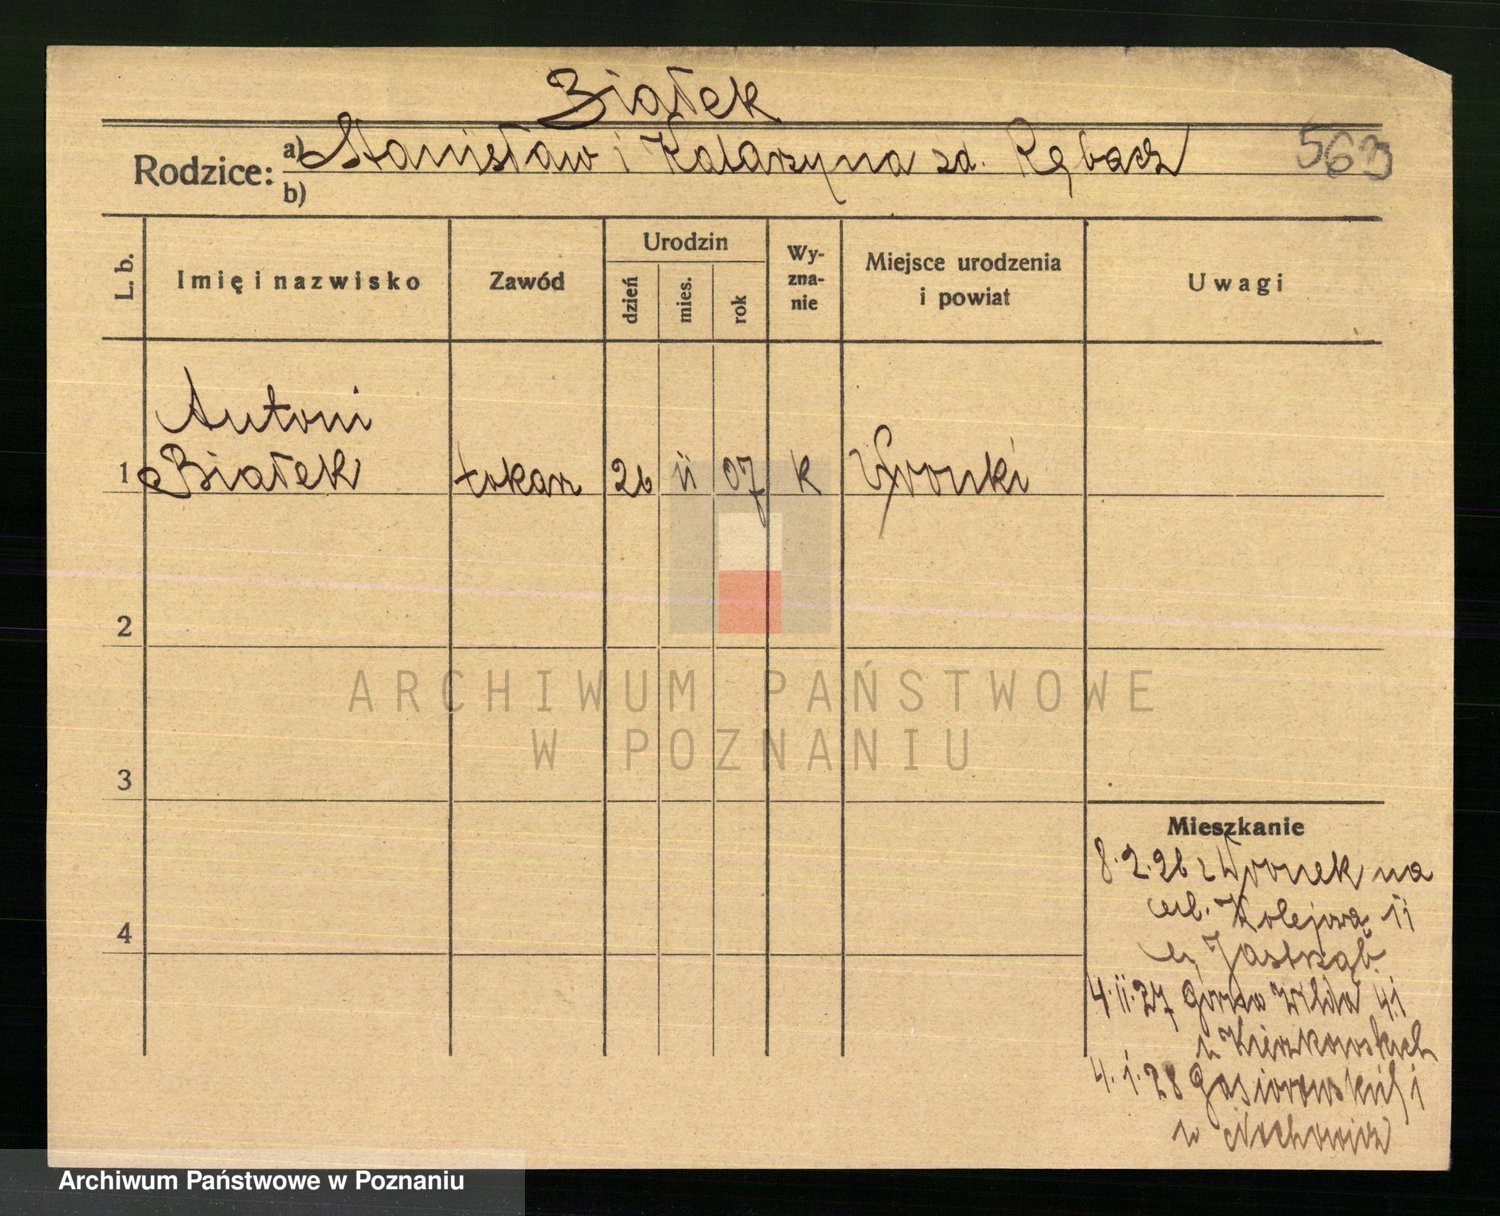 Białek
563
Rodzice: a) Stanisław i Katarzyna zd. Rębacz
b)
L. b. Imię i nazwisko Zawód Urodzin dzień mies. rok Wy-zna-nie Miejsce urodzenia i powiat Uwagi
Antoni
1 Białek tokarz 26 ii 07 k Wronki
2
ARCHIWUM PAŃSTWOWE
W POZNANIU
3
Mieszkanie
8.2.26 z Wronek na
ul. Kolejowa 11
u Jastrząb
4
4.ii.27 Górna Wilda 41
u Kierzkowskich
4.1.28 Gąsiorowskich
u
Archiwum Państwowe w Poznaniu